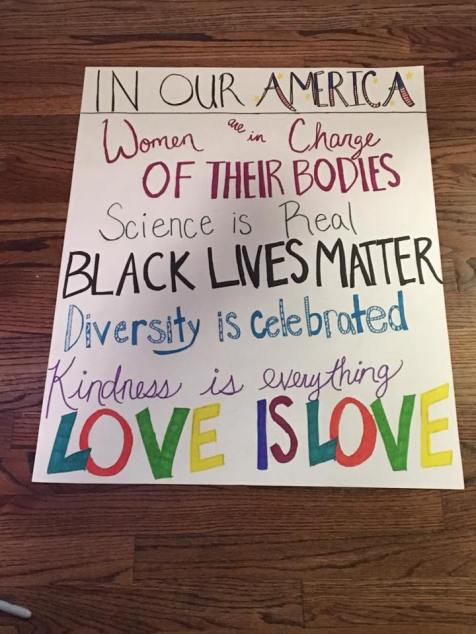 IN OUR AMERICA
Women are in Change
OF THEIR BODIES
Science is Real
BLACK LIVES MATTER
Diversity is celebrated
Kindness is everything
LOVE IS LOVE